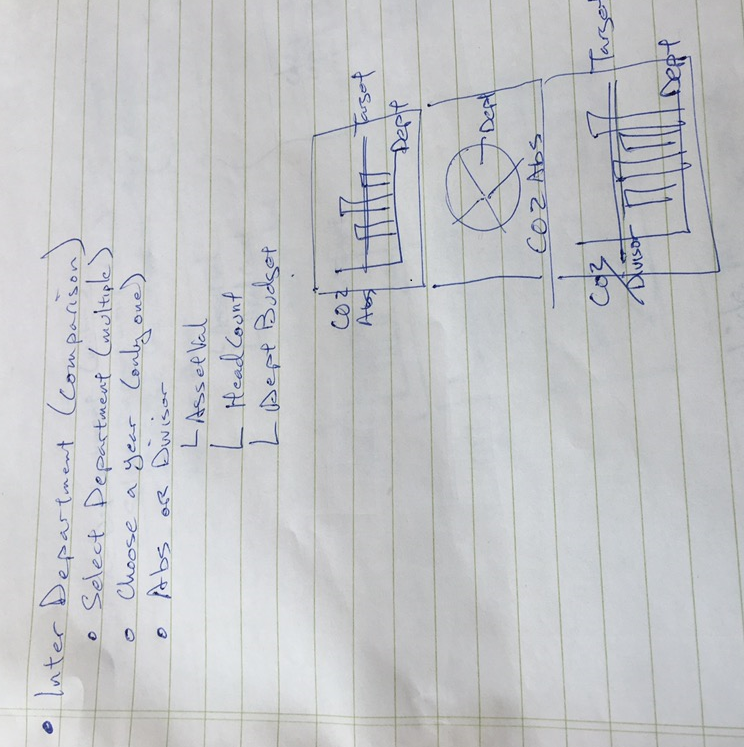 • Inter Department (Comparison)
• Select Department (multiple)
• Choose a year (only one)
• Abs OR Divisor
AssetVal
HeadCount
Dept Budget
CO2
Abs
Target
Dept
Dept
CO2 Abs
CO2
Divisor
Target
Dept